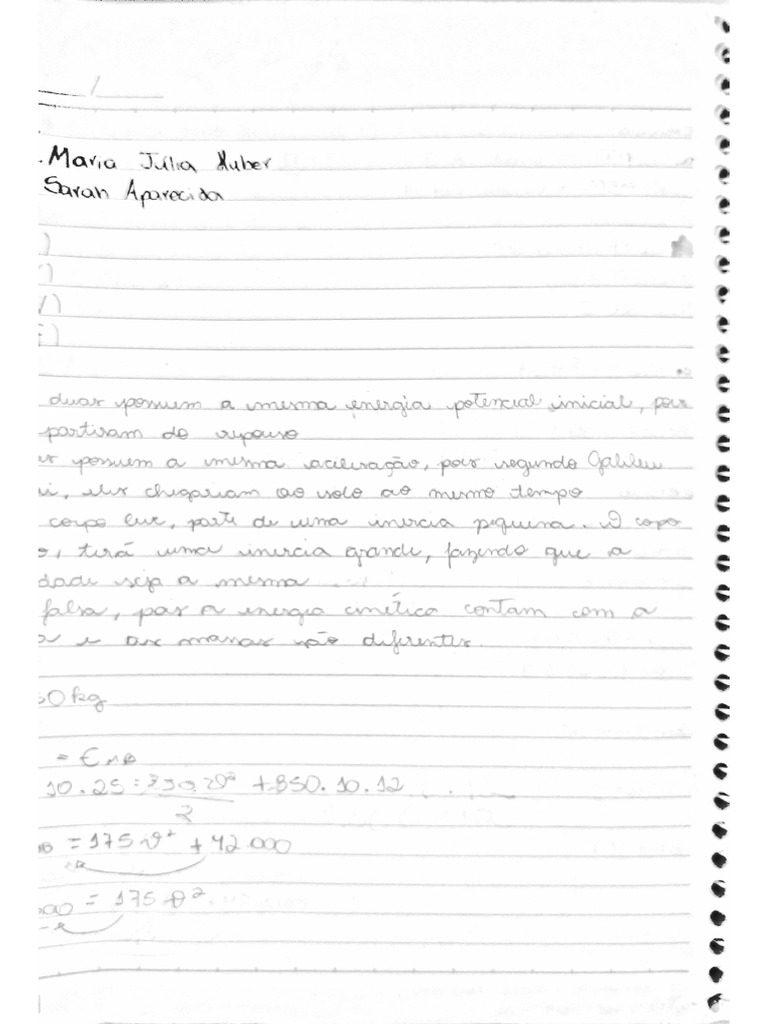 Maria Júlia Huber
Sarah Aparecida
)
)
V)
F)
duas possuem a mesma energia potencial inicial, pois
partiram do repouso
possuem a mesma aceleração, pois segundo Galileu
, eles chegariam ao solo ao mesmo tempo
corpo leve, parte de uma inercia pequena. O copo
o, terá uma inercia grande, fazendo que a
dade seja a mesma
falsa, pois a energia cinética contam com a
a e as massas são diferentes.
50 kg
= EMB
10.25 = 350.v² + 350.10.12
2
= 175 v² + 42.000
000 = 175 v²